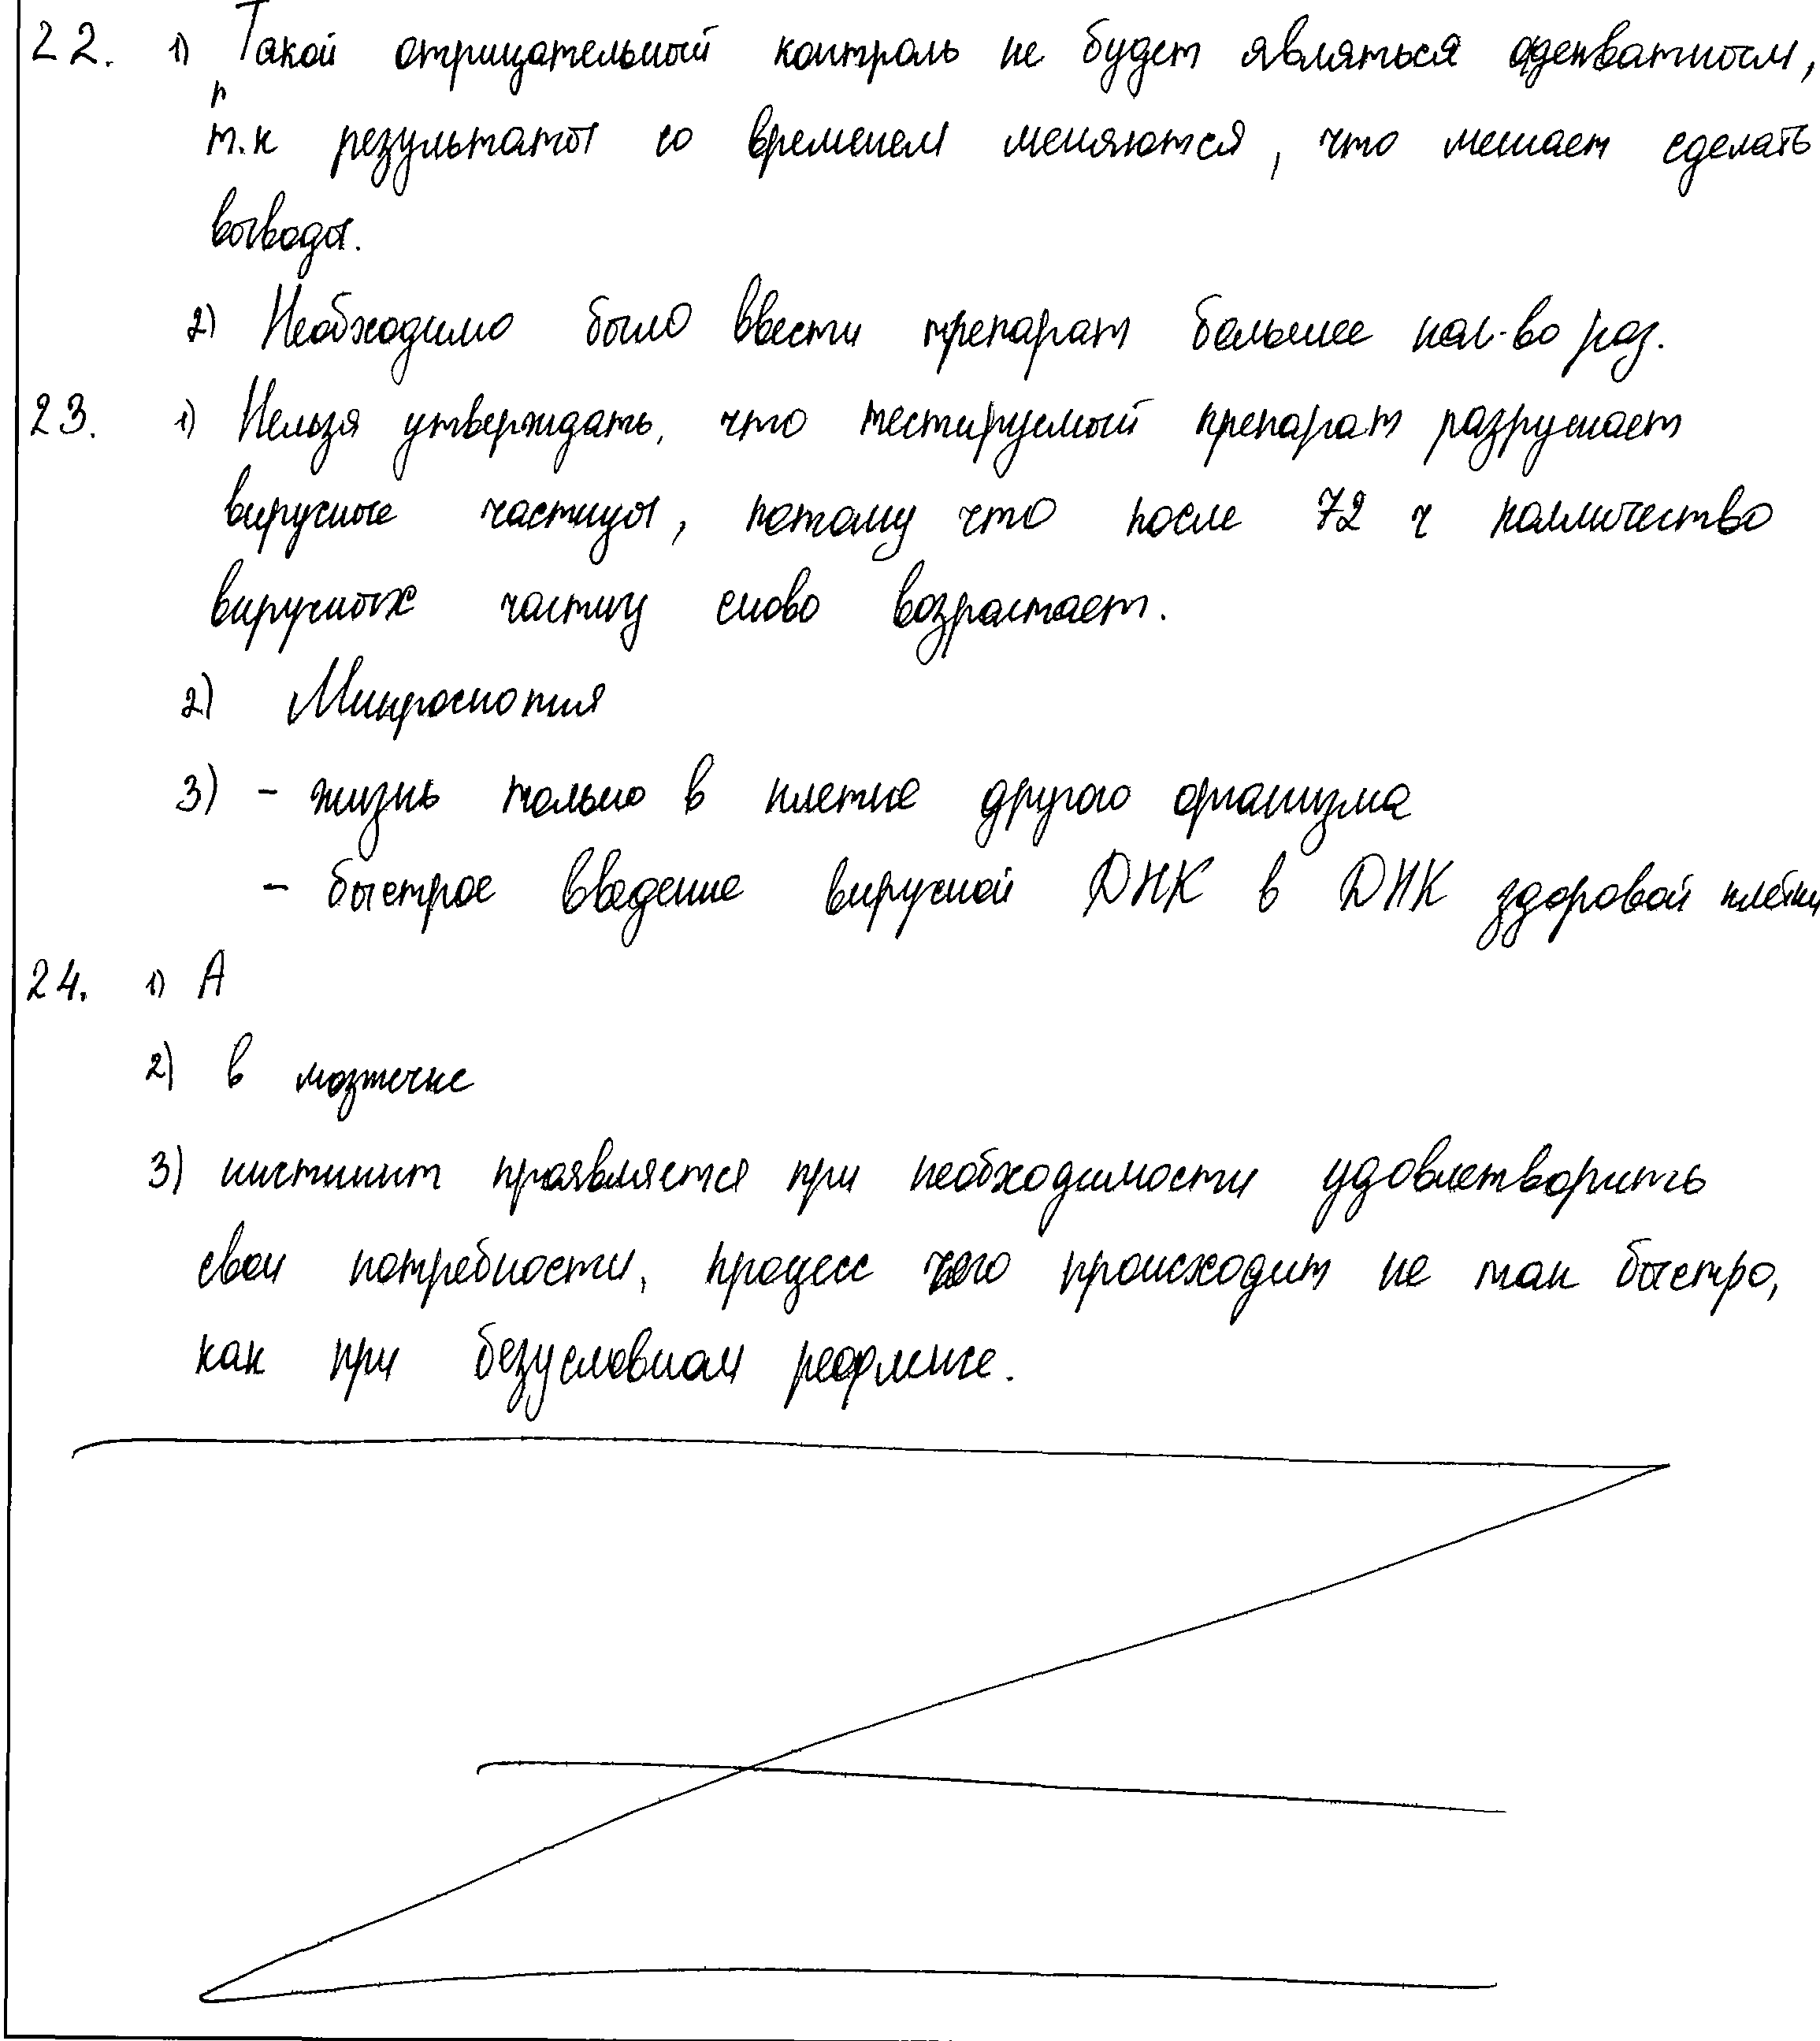 22. 1) Такой отрицательный контроль не будет являться адекватным,
т.к результаты со временем меняются, что мешает сделать
выводы.
2) Необходимо было ввести препарат большее кол-во раз.
23. 1) Нельзя утверждать, что тестируемый препарат разрушает
вирусные частицы, потому что после 72 ч колличество
вирусных частиц снова возрастает.
2) Микроскопия
3) - жизнь только в клетке другого организма
- быстрое введение вирусной ДНК в ДНК здоровой клетки
24. 1) А
2) в мозжечке
3) инстинкт проявляется при необходимости удовлетворить
свои потребности, процесс чего происходит не так быстро,
как при безусловном рефлексе.